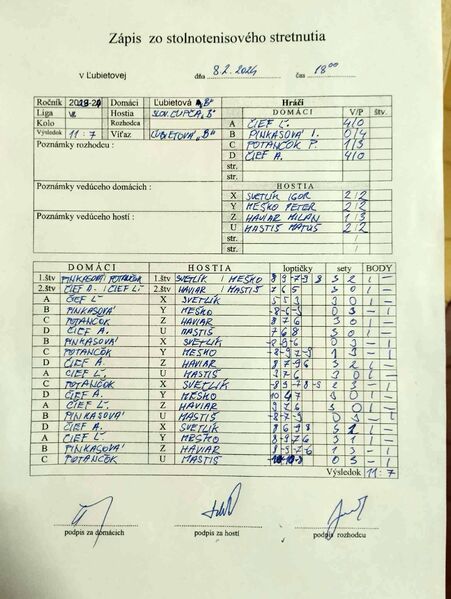 Zápis zo stolnotenisového stretnutia
v Ľubietovej dňa 8.2.2024 čas 18⁰⁰
Ročník Domáci Ľubietová "B" Hráči
Liga Hostia SLOV. ĽUPČA "B" DOMÁCI V/P štv.
Kolo Rozhodca A ČIEF Ľ. 4/0
Výsledok 11:7 Víťaz ĽUBIETOVÁ "B" B PINKASOVÁ I. 0/4
Poznámky rozhodcu : C POTANČOK P. 1/3
D ČIEF A. 4/0
str.
str.
Poznámky vedúceho domácich : HOSTIA
X SVETLÍK IGOR 2/2
Y MEŠKO PETER 2/2
Poznámky vedúceho hostí : Z HAVIAR MILAN 1/3
U MASTIŠ MATÚŠ 2/2
str.
str.
DOMÁCI HOSTIA loptičky sety BODY
1.štv PINKASOVÁ / POTANČOK 1.štv SVETLÍK / MEŠKO 3 2 1 —
2.štv ČIEF A. / ČIEF Ľ. 2.štv HAVIAR / MASTIŠ 7 6 5 3 0 1 —
A ČIEF Ľ. X SVETLÍK 5 5 3 3 0 1 —
B PINKASOVÁ Y MEŠKO 0 3 — 1
C POTANČOK Z HAVIAR 8 7 6 3 0 1 —
D ČIEF A. U MASTIŠ 7 6 8 3 0 1 —
B PINKASOVÁ X SVETLÍK 0 3 — 1
C POTANČOK Y MEŠKO 1 3 — 1
D ČIEF A. Z HAVIAR 3 2 1 —
A ČIEF Ľ. U MASTIŠ 3 0 1 —
C POTANČOK X SVETLÍK — 1
D ČIEF A. Y MEŠKO 10 4 7 3 0 1 —
A ČIEF Ľ. Z HAVIAR 9 7 6 3 0 1 —
B PINKASOVÁ U MASTIŠ 0 3 — 1
D ČIEF A. X SVETLÍK 8 6 9 8 3 1 1 —
A ČIEF Ľ. Y MEŠKO 3 1 1 —
B PINKASOVÁ Z HAVIAR 1 3 — 1
C POTANČOK U MASTIŠ 0 3 — 1
Výsledok 11:7
podpis za domácich podpis za hostí podpis rozhodcu